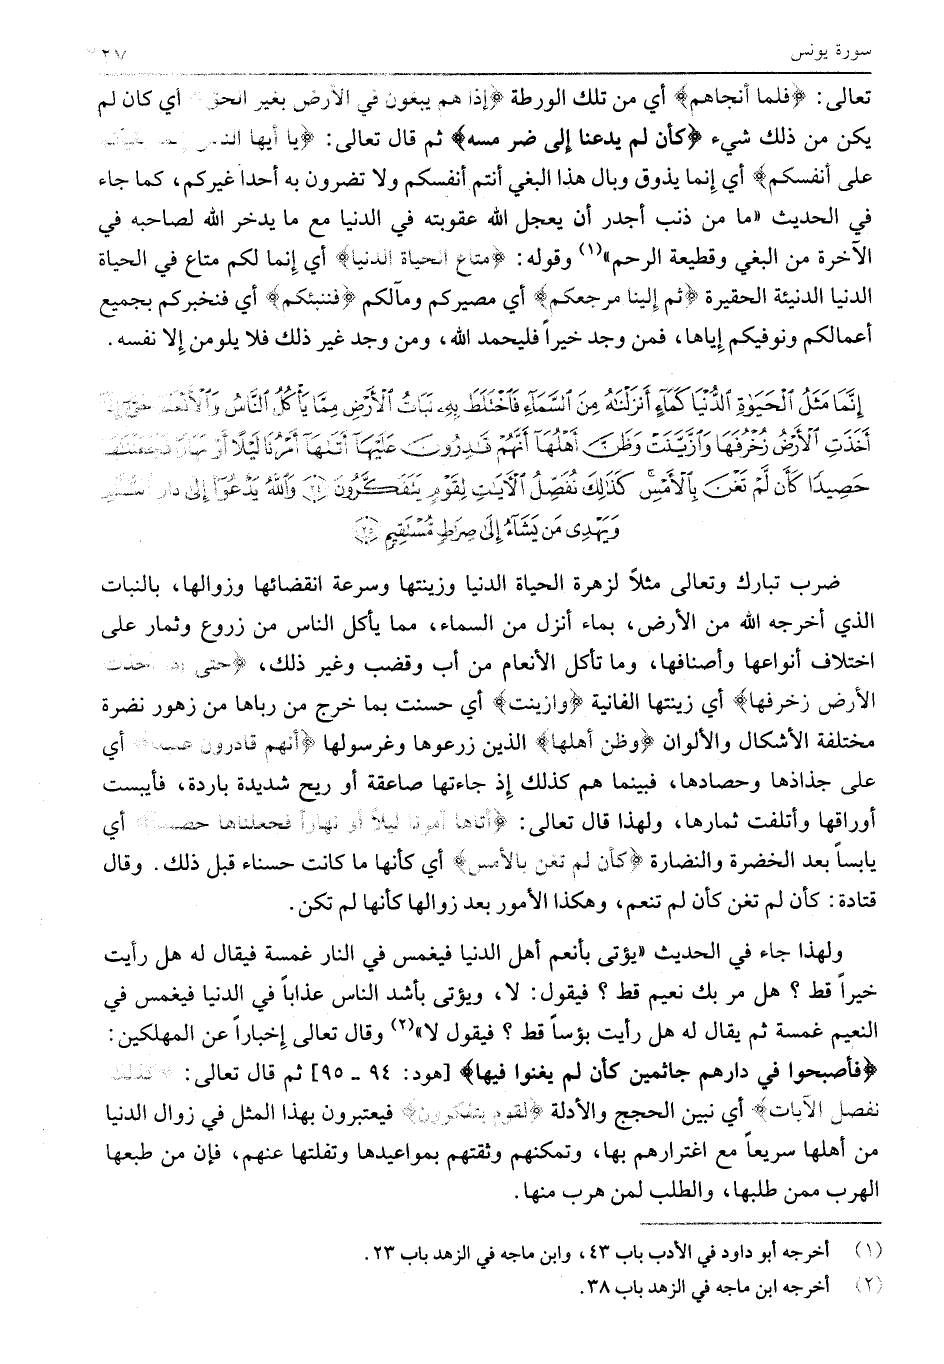 سورة يونس
تعالى: ﴿فلما أنجاهم﴾ أي من تلك الورطة ﴿إذا هم يبغون في الأرض بغير الحق﴾ أي كان لم
يكن من ذلك شيء ﴿كأن لم يدعنا إلى ضر مسه﴾ ثم قال تعالى: ﴿يا أيها الناس إنما بغيكم
على أنفسكم﴾ أي إنما يذوق وبال هذا البغي أنتم أنفسكم ولا تضرون به أحدا غيركم، كما جاء
في الحديث «ما من ذنب أجدر أن يعجل الله عقوبته في الدنيا مع ما يدخر الله لصاحبه في
الآخرة من البغي وقطيعة الرحم»(١) وقوله: ﴿متاع الحياة الدنيا﴾ أي إنما لكم متاع في الحياة
الدنيا الدنيئة الحقيرة ﴿ثم إلينا مرجعكم﴾ أي مصيركم ومآلكم ﴿فننبئكم﴾ أي فنخبركم بجميع
أعمالكم ونوفيكم إياها، فمن وجد خيراً فليحمد الله، ومن وجد غير ذلك فلا يلومن إلا نفسه.
إِنَّمَا مَثَلُ ٱلْحَيَوٰةِ ٱلدُّنْيَا كَمَآءٍ أَنزَلْنَٰهُ مِنَ ٱلسَّمَآءِ فَٱخْتَلَطَ بِهِۦ نَبَاتُ ٱلْأَرْضِ مِمَّا يَأْكُلُ ٱلنَّاسُ وَٱلْأَنْعَٰمُ حَتَّىٰٓ إِذَآ
أَخَذَتِ ٱلْأَرْضُ زُخْرُفَهَا وَٱزَّيَّنَتْ وَظَنَّ أَهْلُهَآ أَنَّهُمْ قَٰدِرُونَ عَلَيْهَآ أَتَىٰهَآ أَمْرُنَا لَيْلًا أَوْ نَهَارًا فَجَعَلْنَٰهَا
حَصِيدًا كَأَن لَّمْ تَغْنَ بِٱلْأَمْسِ ۚ كَذَٰلِكَ نُفَصِّلُ ٱلْءَايَٰتِ لِقَوْمٍ يَتَفَكَّرُونَ ﴿٢٤﴾ وَٱللَّهُ يَدْعُوٓا۟ إِلَىٰ دَارِ ٱلسَّلَٰمِ
وَيَهْدِى مَن يَشَآءُ إِلَىٰ صِرَٰطٍ مُّسْتَقِيمٍ ﴿٢٥﴾
ضرب تبارك وتعالى مثلاً لزهرة الحياة الدنيا وزينتها وسرعة انقضائها وزوالها، بالنبات
الذي أخرجه الله من الأرض، بماء أنزل من السماء، مما يأكل الناس من زروع وثمار على
اختلاف أنواعها وأصنافها، وما تأكل الأنعام من أب وقضب وغير ذلك، ﴿حتى إذا أخذت
الأرض زخرفها﴾ أي زينتها الفانية ﴿وازينت﴾ أي حسنت بما خرج من رباها من زهور نضرة
مختلفة الأشكال والألوان ﴿وظن أهلها﴾ الذين زرعوها وغرسولها ﴿أنهم قادرون عليها﴾ أي
على جذاذها وحصادها، فبينما هم كذلك إذ جاءتها صاعقة أو ريح شديدة باردة، فأيبست
أوراقها وأتلفت ثمارها، ولهذا قال تعالى: ﴿أتاها أمرنا ليلاً أو نهاراً فجعلناها حصيداً﴾ أي
يابساً بعد الخضرة والنضارة ﴿كأن لم تغن بالأمس﴾ أي كأنها ما كانت حسناء قبل ذلك. وقال
قتادة: كأن لم تغن كأن لم تنعم، وهكذا الأمور بعد زوالها كأنها لم تكن.
ولهذا جاء في الحديث «يؤتى بأنعم أهل الدنيا فيغمس في النار غمسة فيقال له هل رأيت
خيراً قط؟ هل مر بك نعيم قط؟ فيقول: لا، ويؤتى بأشد الناس عذاباً في الدنيا فيغمس في
النعيم غمسة ثم يقال له هل رأيت بؤساً قط؟ فيقول لا»(٢) وقال تعالى إخباراً عن المهلكين:
﴿فأصبحوا في دارهم جاثمين كأن لم يغنوا فيها﴾ [هود: ٩٤ ـ ٩٥] ثم قال تعالى: ﴿كذلك
نفصل الآيات﴾ أي نبين الحجج والأدلة ﴿لقوم يتفكرون﴾ فيعتبرون بهذا المثل في زوال الدنيا
من أهلها سريعاً مع اغترارهم بها، وتمكنهم وثقتهم بمواعيدها وتفلتها عنهم، فإن من طبعها
الهرب ممن طلبها، والطلب لمن هرب منها.
(١) أخرجه أبو داود في الأدب باب ٤٣، وابن ماجه في الزهد باب ٢٣.
(٢) أخرجه ابن ماجه في الزهد باب ٣٨.